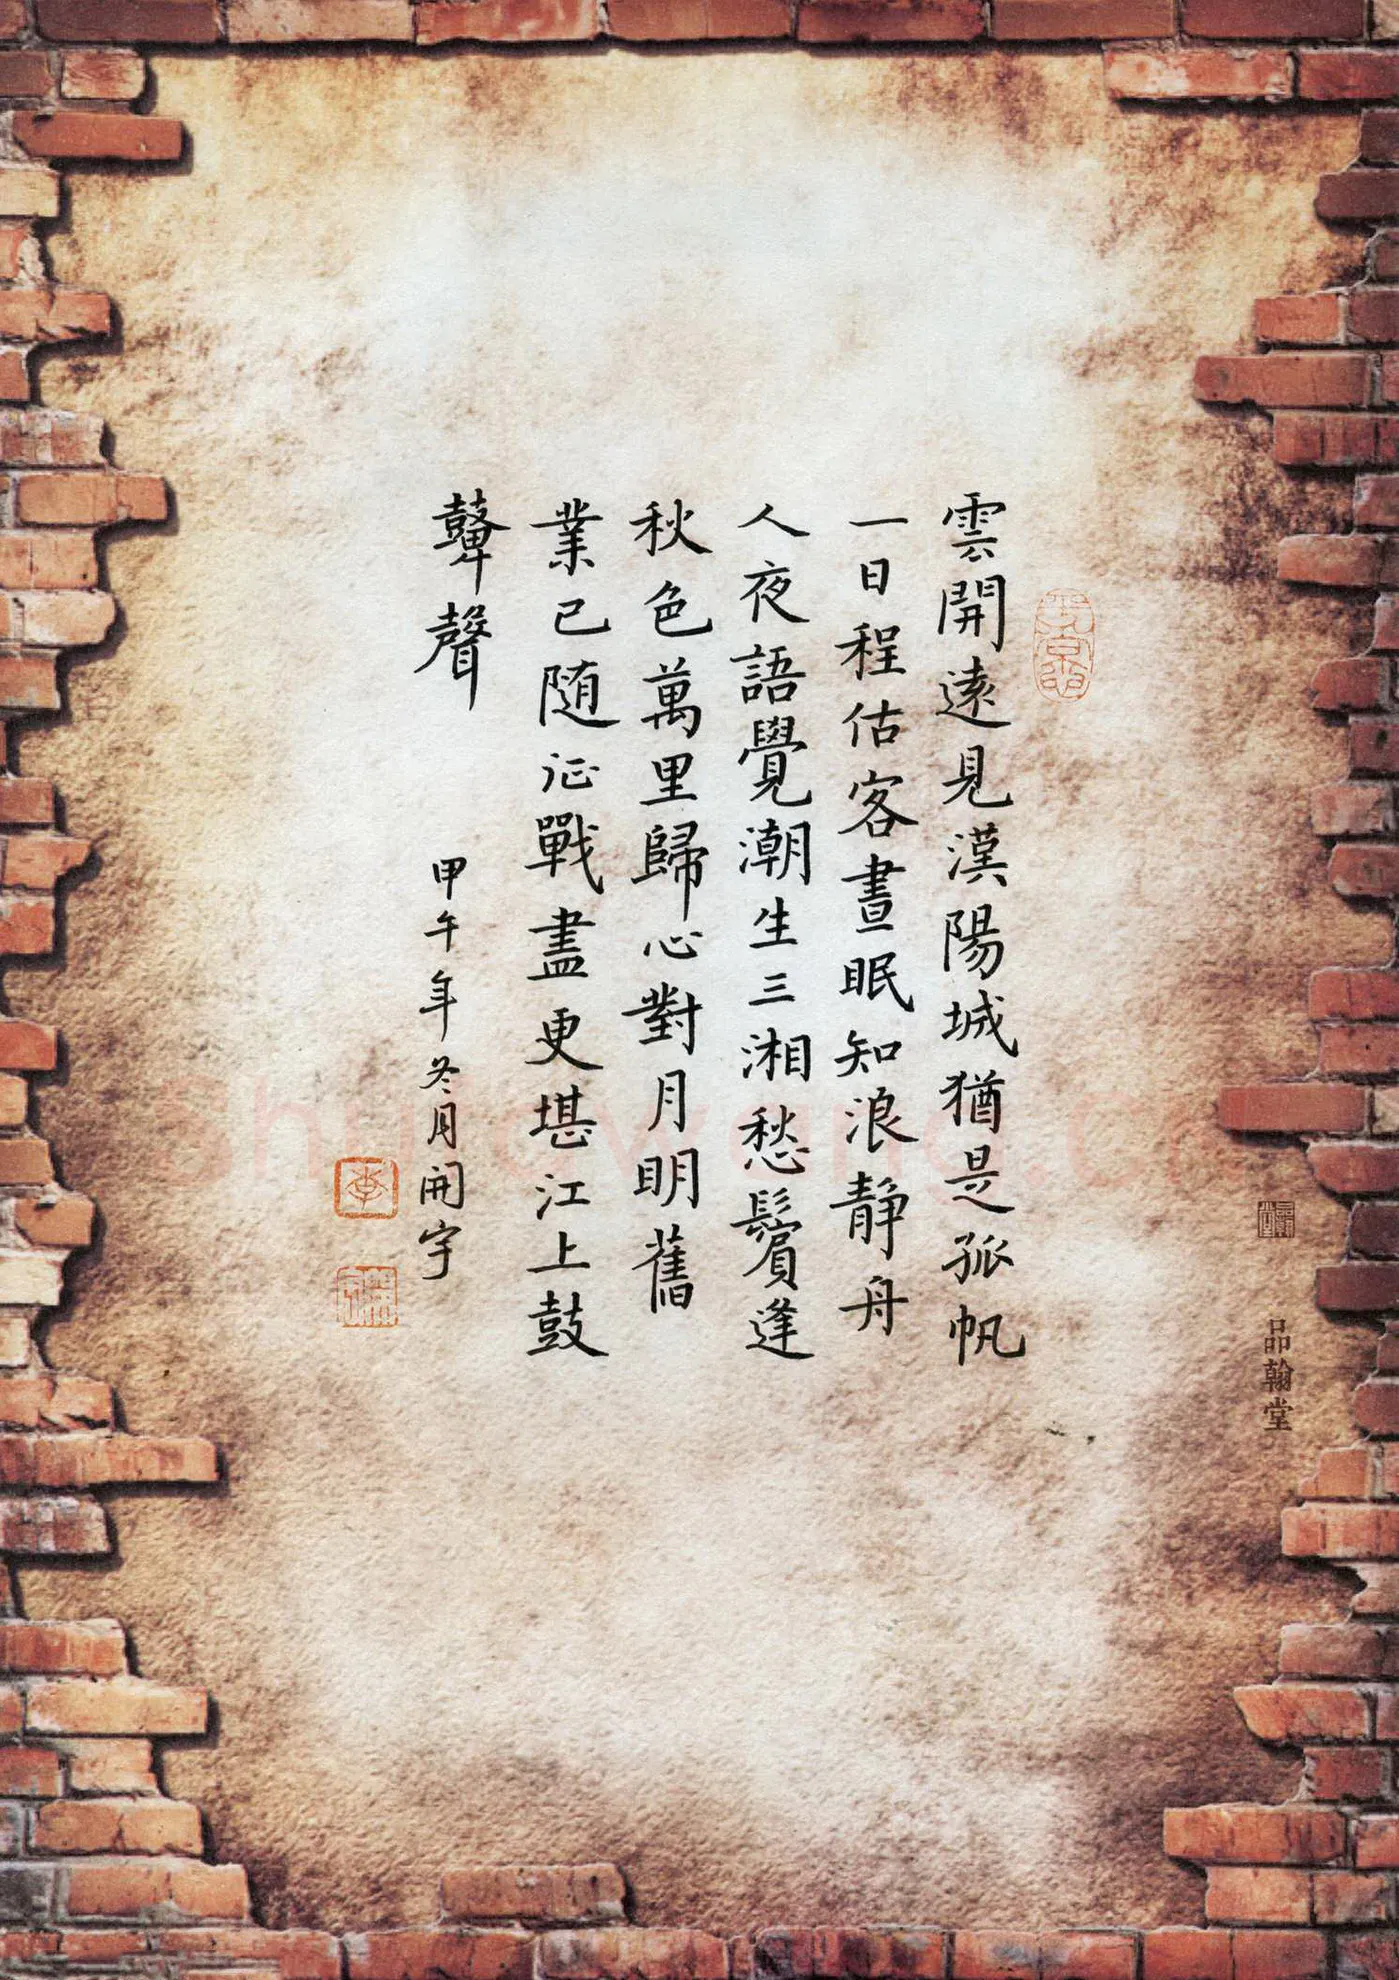 雲開遠見漢陽城猶是孤帆
一日程估客晝眠知浪静舟
人夜語覺潮生三湘愁鬢逢
秋色萬里歸心對月明舊
業已随征戰盡更堪江上鼓
鼙聲
甲午年冬月開宇
李
品翰堂